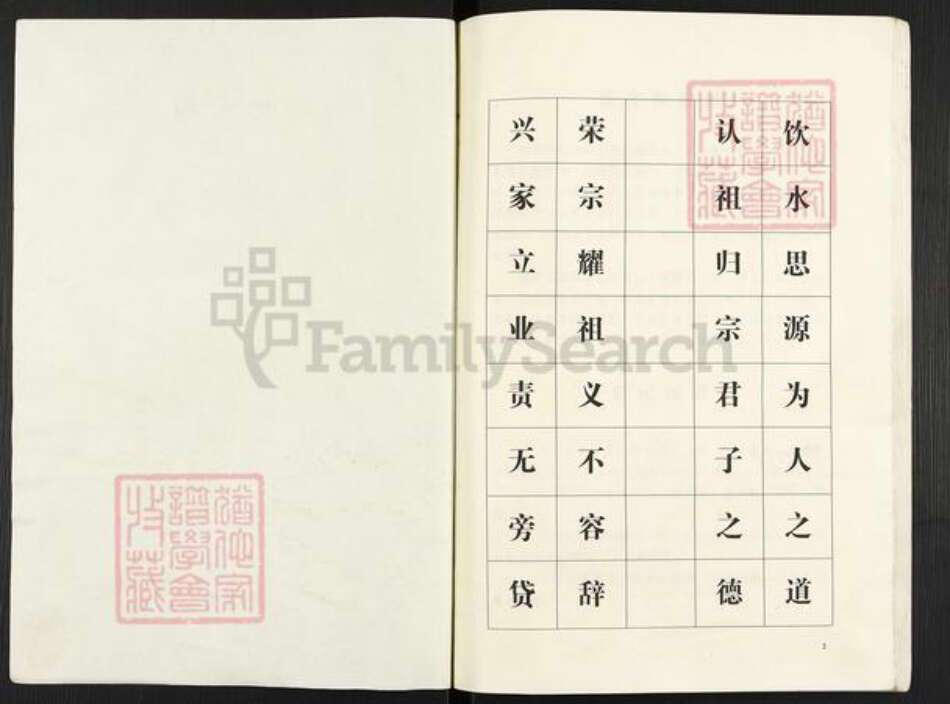 饮水思源为人之道
认祖归宗君子之德
荣宗耀祖义不容辞
兴家立业责无旁贷
2
FamilySearch